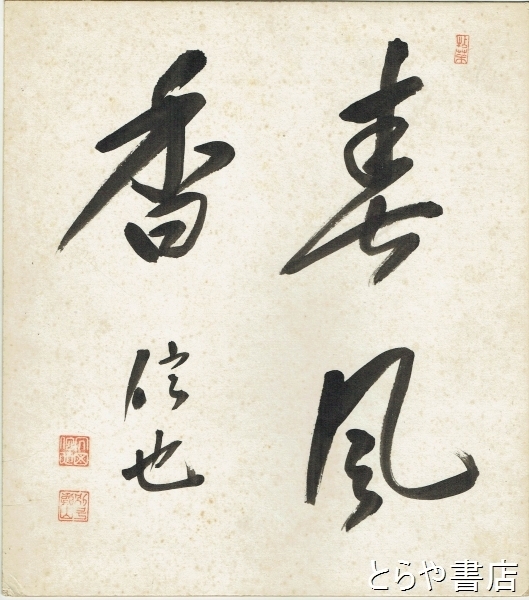 春風
香
信也
とらや書店